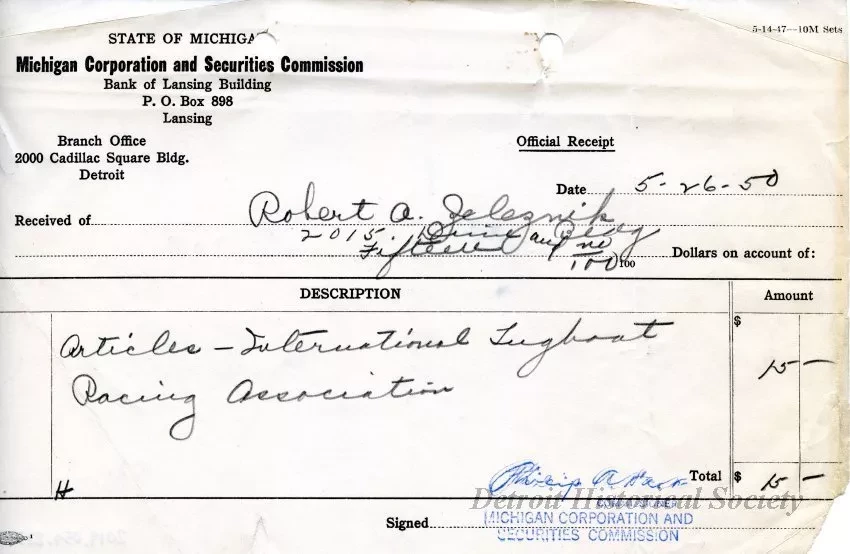 5-14-47—10M Sets
STATE OF MICHIGA
Michigan Corporation and Securities Commission
Bank of Lansing Building
P. O. Box 898
Lansing
Branch Office
2000 Cadillac Square Bldg.
Detroit
Official Receipt
Date 5-26-50
Received of Robert A. Zeleznik
2015 Bldg
Fifteen and no/100 100 Dollars on account of:
DESCRIPTION Amount
Articles - International Tugboat
Racing Association
$ 15 —
H
Philip A Hart Total $ 15 —
Detroit Historical Society
COMMISSIONER
Signed MICHIGAN CORPORATION AND
SECURITIES COMMISSION